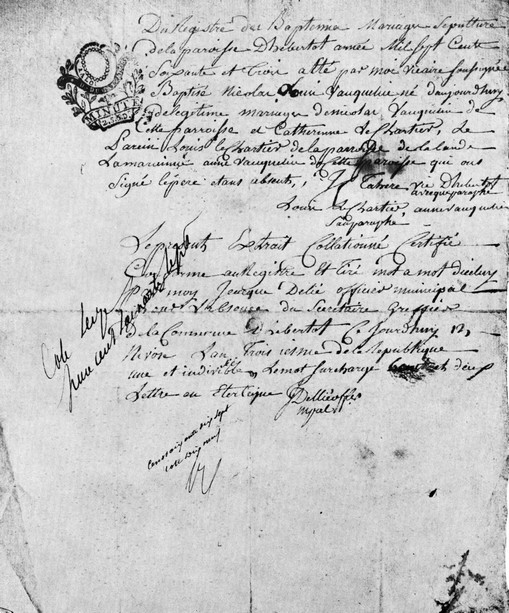 Du Registre des Baptemes Mariages Sepulture
de la paroisse D'hebertot année Mil Sept Cents
Soixante et Trois a été par moi vicaire soussigné
Baptisé Nicolas Louis Vauquelin né daujourdhuy
de legitime mariage de nicolas Vauquelin de
cette parroisse et Catherinne Le Chartier, Le
Parein Louis le Chartier de la parroisse de la lande
La maraine anne Vauquelin de cette paroisse qui ont
signé le pere etant absent,
MINUTE
Tabere vic D'hebertot
avecque paraphe
Louis le Chartier, anne vauquelin
Sans paraphe
Le present Extrait Collationné Certifié
Conforme au Registre Et Tiré mot a mot
Par moy Jacque Delié officier municipal
par L'absence du Secretaire Greffier
de la Commune d'hebertot Ce Jourdhuy 12,
Nivose L'an Trois ieme de la Republique
une et indivisible, Le mot surchargé
Lettre au
Cote Seize